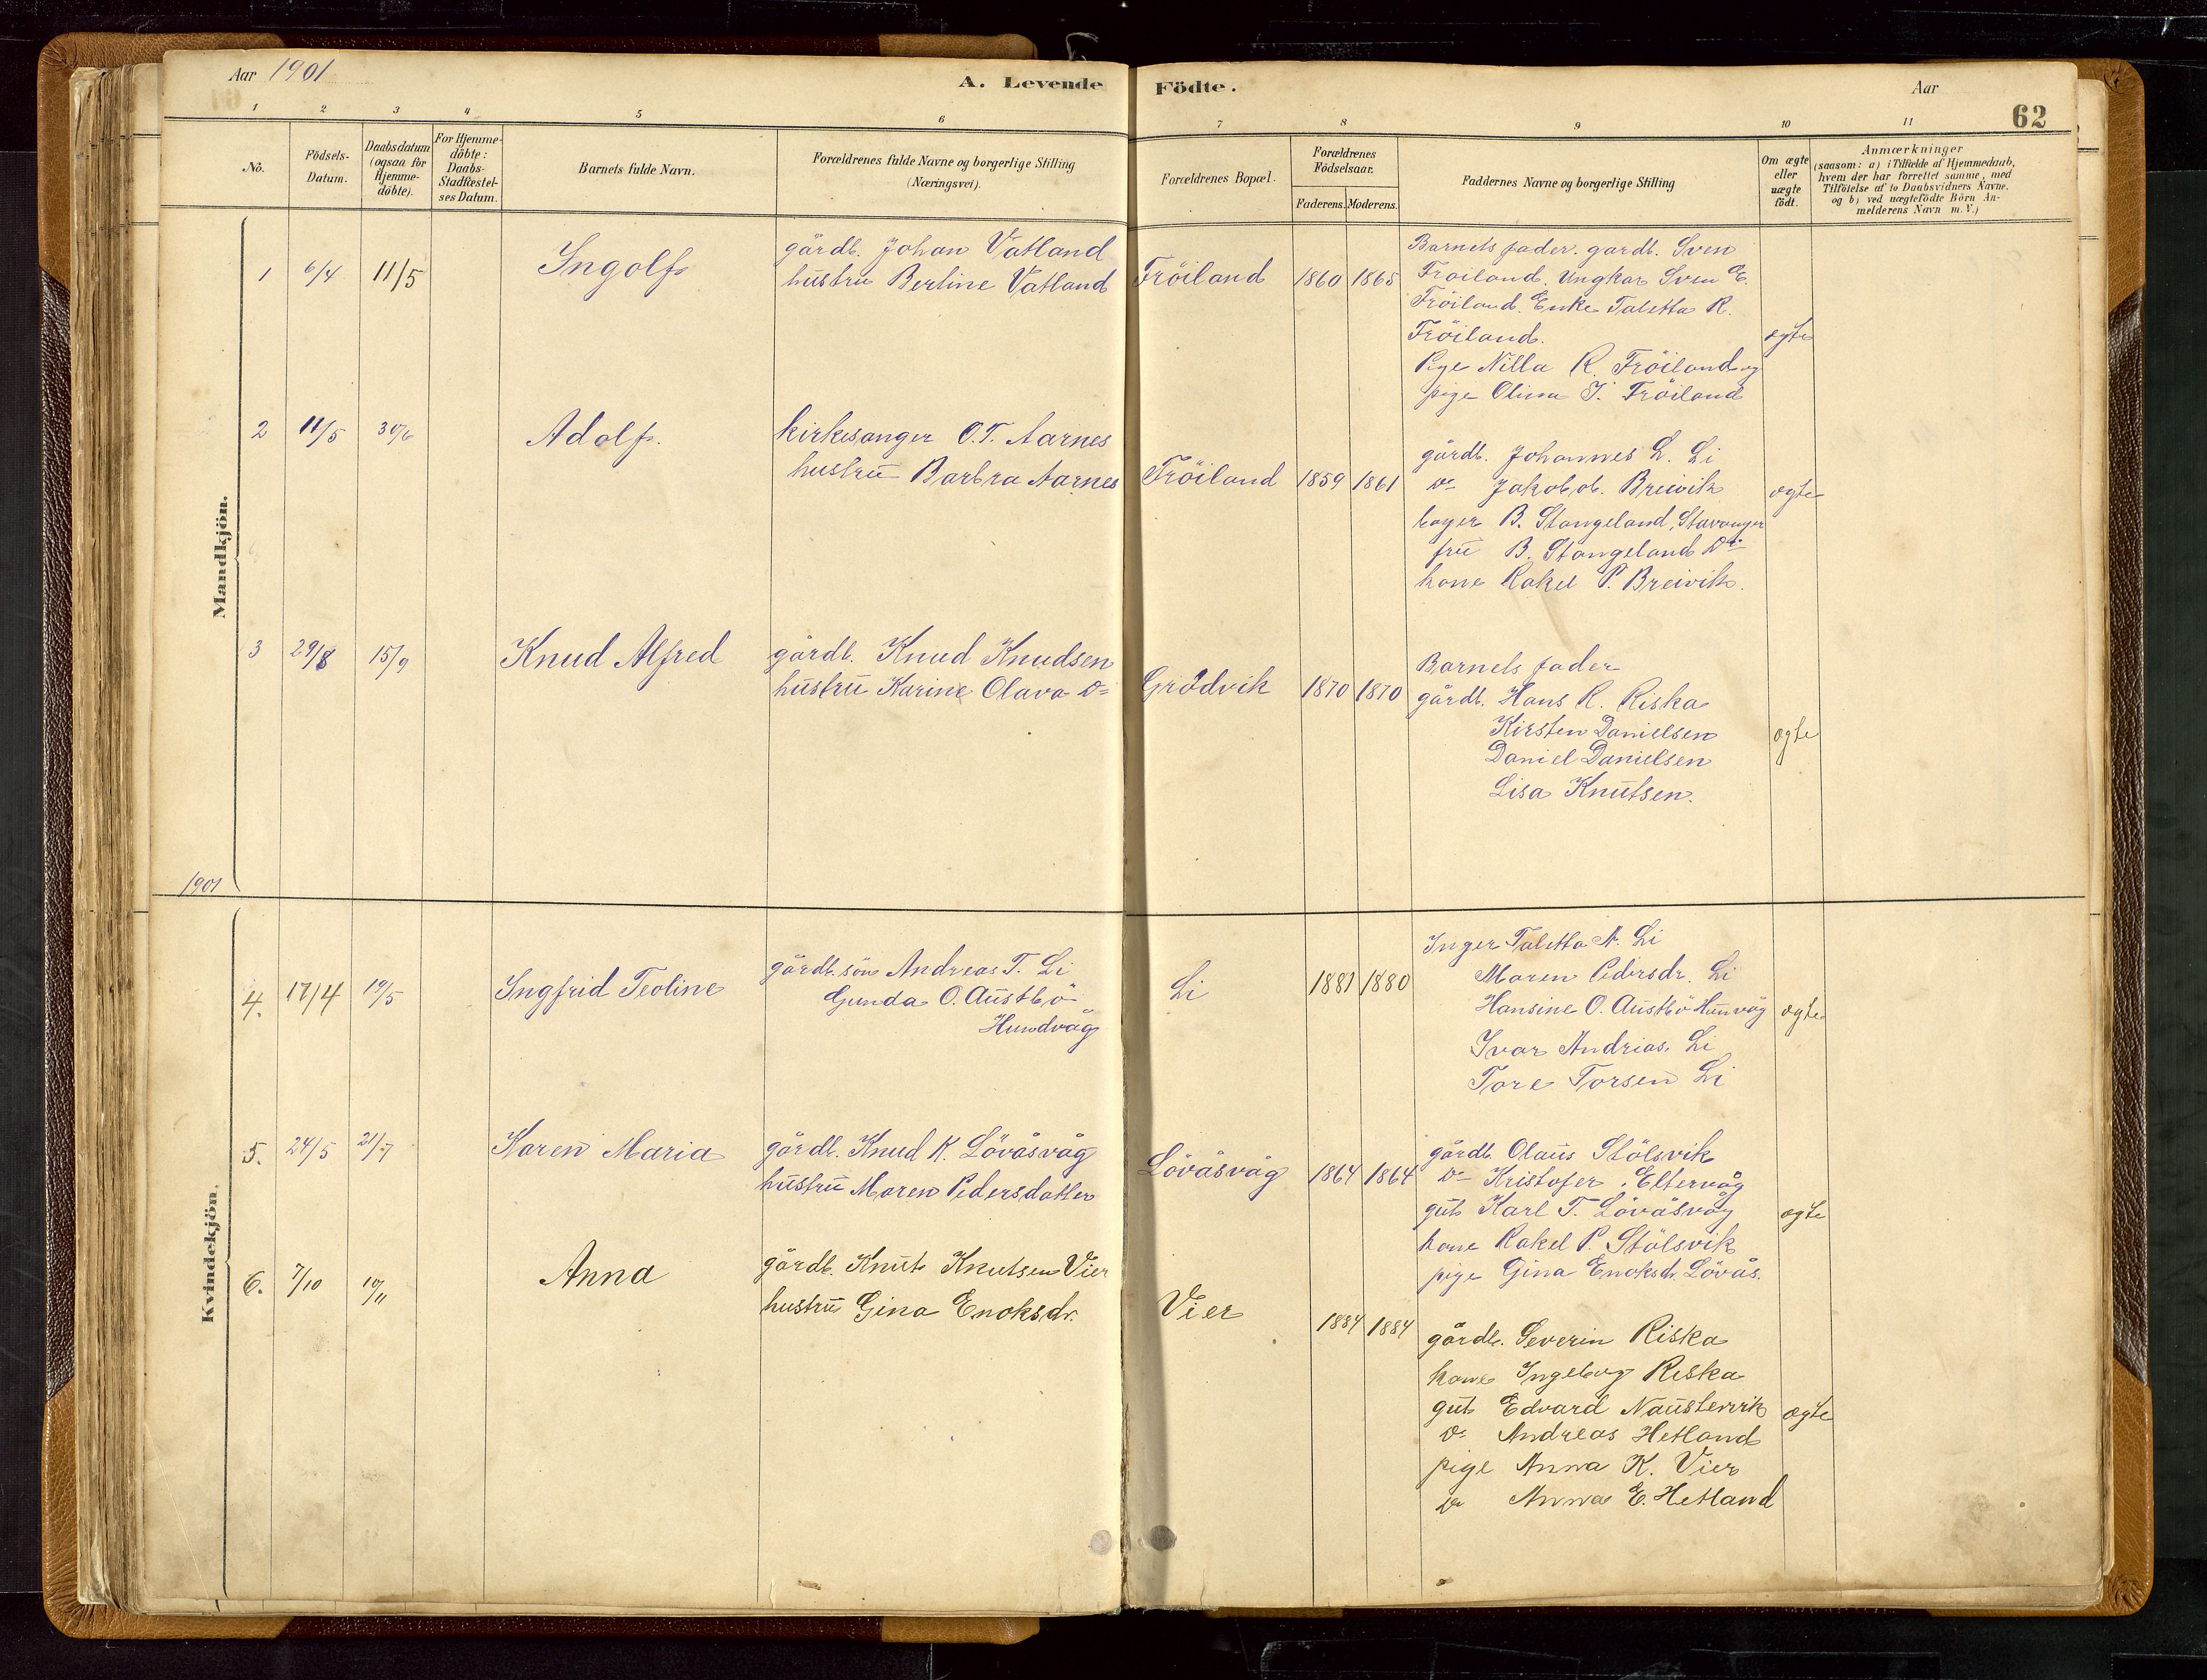 Aar 1901
A. Levende Födte.
Aar
62
1 2 3 4 5 6 7 8 9 10 11
No.
Födsels-
Datum.
Daabsdatum
(ogsaa for
Hjemme-
döbte).
For Hjemme-
döbte:
Daabs-
Stadfæstel-
ses Datum.
Barnets fulde Navn.
Forældrenes fulde Navne og borgerlige Stilling
(Næringsvei).
Forældrenes Bopæl.
Forældrenes
Födselsaar.
Faderens. Moderens.
Faddernes Navne og borgerlige Stilling
Om ægte
eller
uægte
födt.
Anmærkninger
(saasom: a) i Tilfælde af Hjemmedaab,
hvem der har forrettet samme, med
Tilföielse af to Daabsvidners Navne.
og b) ved uægtefödte Börn An-
melderens Navn m. V.)
Mandkjön.
1 6/4 11/5 Ingolf
gårdb. Johan Vatland
hustru Bertine Vatland
Fröiland 1860 1865
Barnets fader. gardb. Sven
Fröiland. Ungkar Sven E.
Fröiland. Enke Taletta R.
Fröiland.
Pige Nilla R. Fröiland og
pige Olina J. Fröiland
ægte
2 11/5 30/6 Adolf.
kirkesanger O.T. Aarnes
hustru Barbra Aarnes
Fröiland 1859 1861
gårdb. Johannes L. Li
do Jakob ob. Breivik
B. Stangeland, Stavanger
fru B. Stangeland do
kone Rakel P. Breivik.
ægte
3 29/8 15/9 Knud Alfred
gårdb. Knud Knudsen
hustru Karine Olava do
Grödvik 1870 1870
Barnets fader
gårdb. Hans R. Riska
Kirsten Danielsen
Daniel Danielsen
Lisa Knutsen.
ægte
1901
Kvindekjön.
4. 17/4 19/5 Ingfrid Teoline
gårdb. sön Andreas T. Li
Gunda O. Austbö
Hundvåg
Li 1881 1880
Inger Taletta A. Li
Maren Pedersdr. Li
Hansine O. Austbö Hunvåg
Ivar Andrias. Li
Tore Torsen Li
ægte
5. 24/5 21/7 Karen Maria
gårdb. Knud K. Lövåsvåg
hustru Maren Pedersdatter
Lövåsvåg 1864 1864
gårdb. Olaus Stölsvik
do Kristofer Eltervåg
gut Karl T. Lövåsvåg
kone Rakel P. Stölsvik
pige Gina Enoksdr. Lövås.
ægte
6. 7/10 10/11 Anna
gårdb. Knut Knutsen Vier
hustru Gina Enoksdr.
Vier 1884 1884
gårdb. Severin Riska
kone Ingeborg Riska
gut Edvard Naustervik
do Andreas Hetland
pige Anna K. Vier
do Anna E. Hetland
ægte